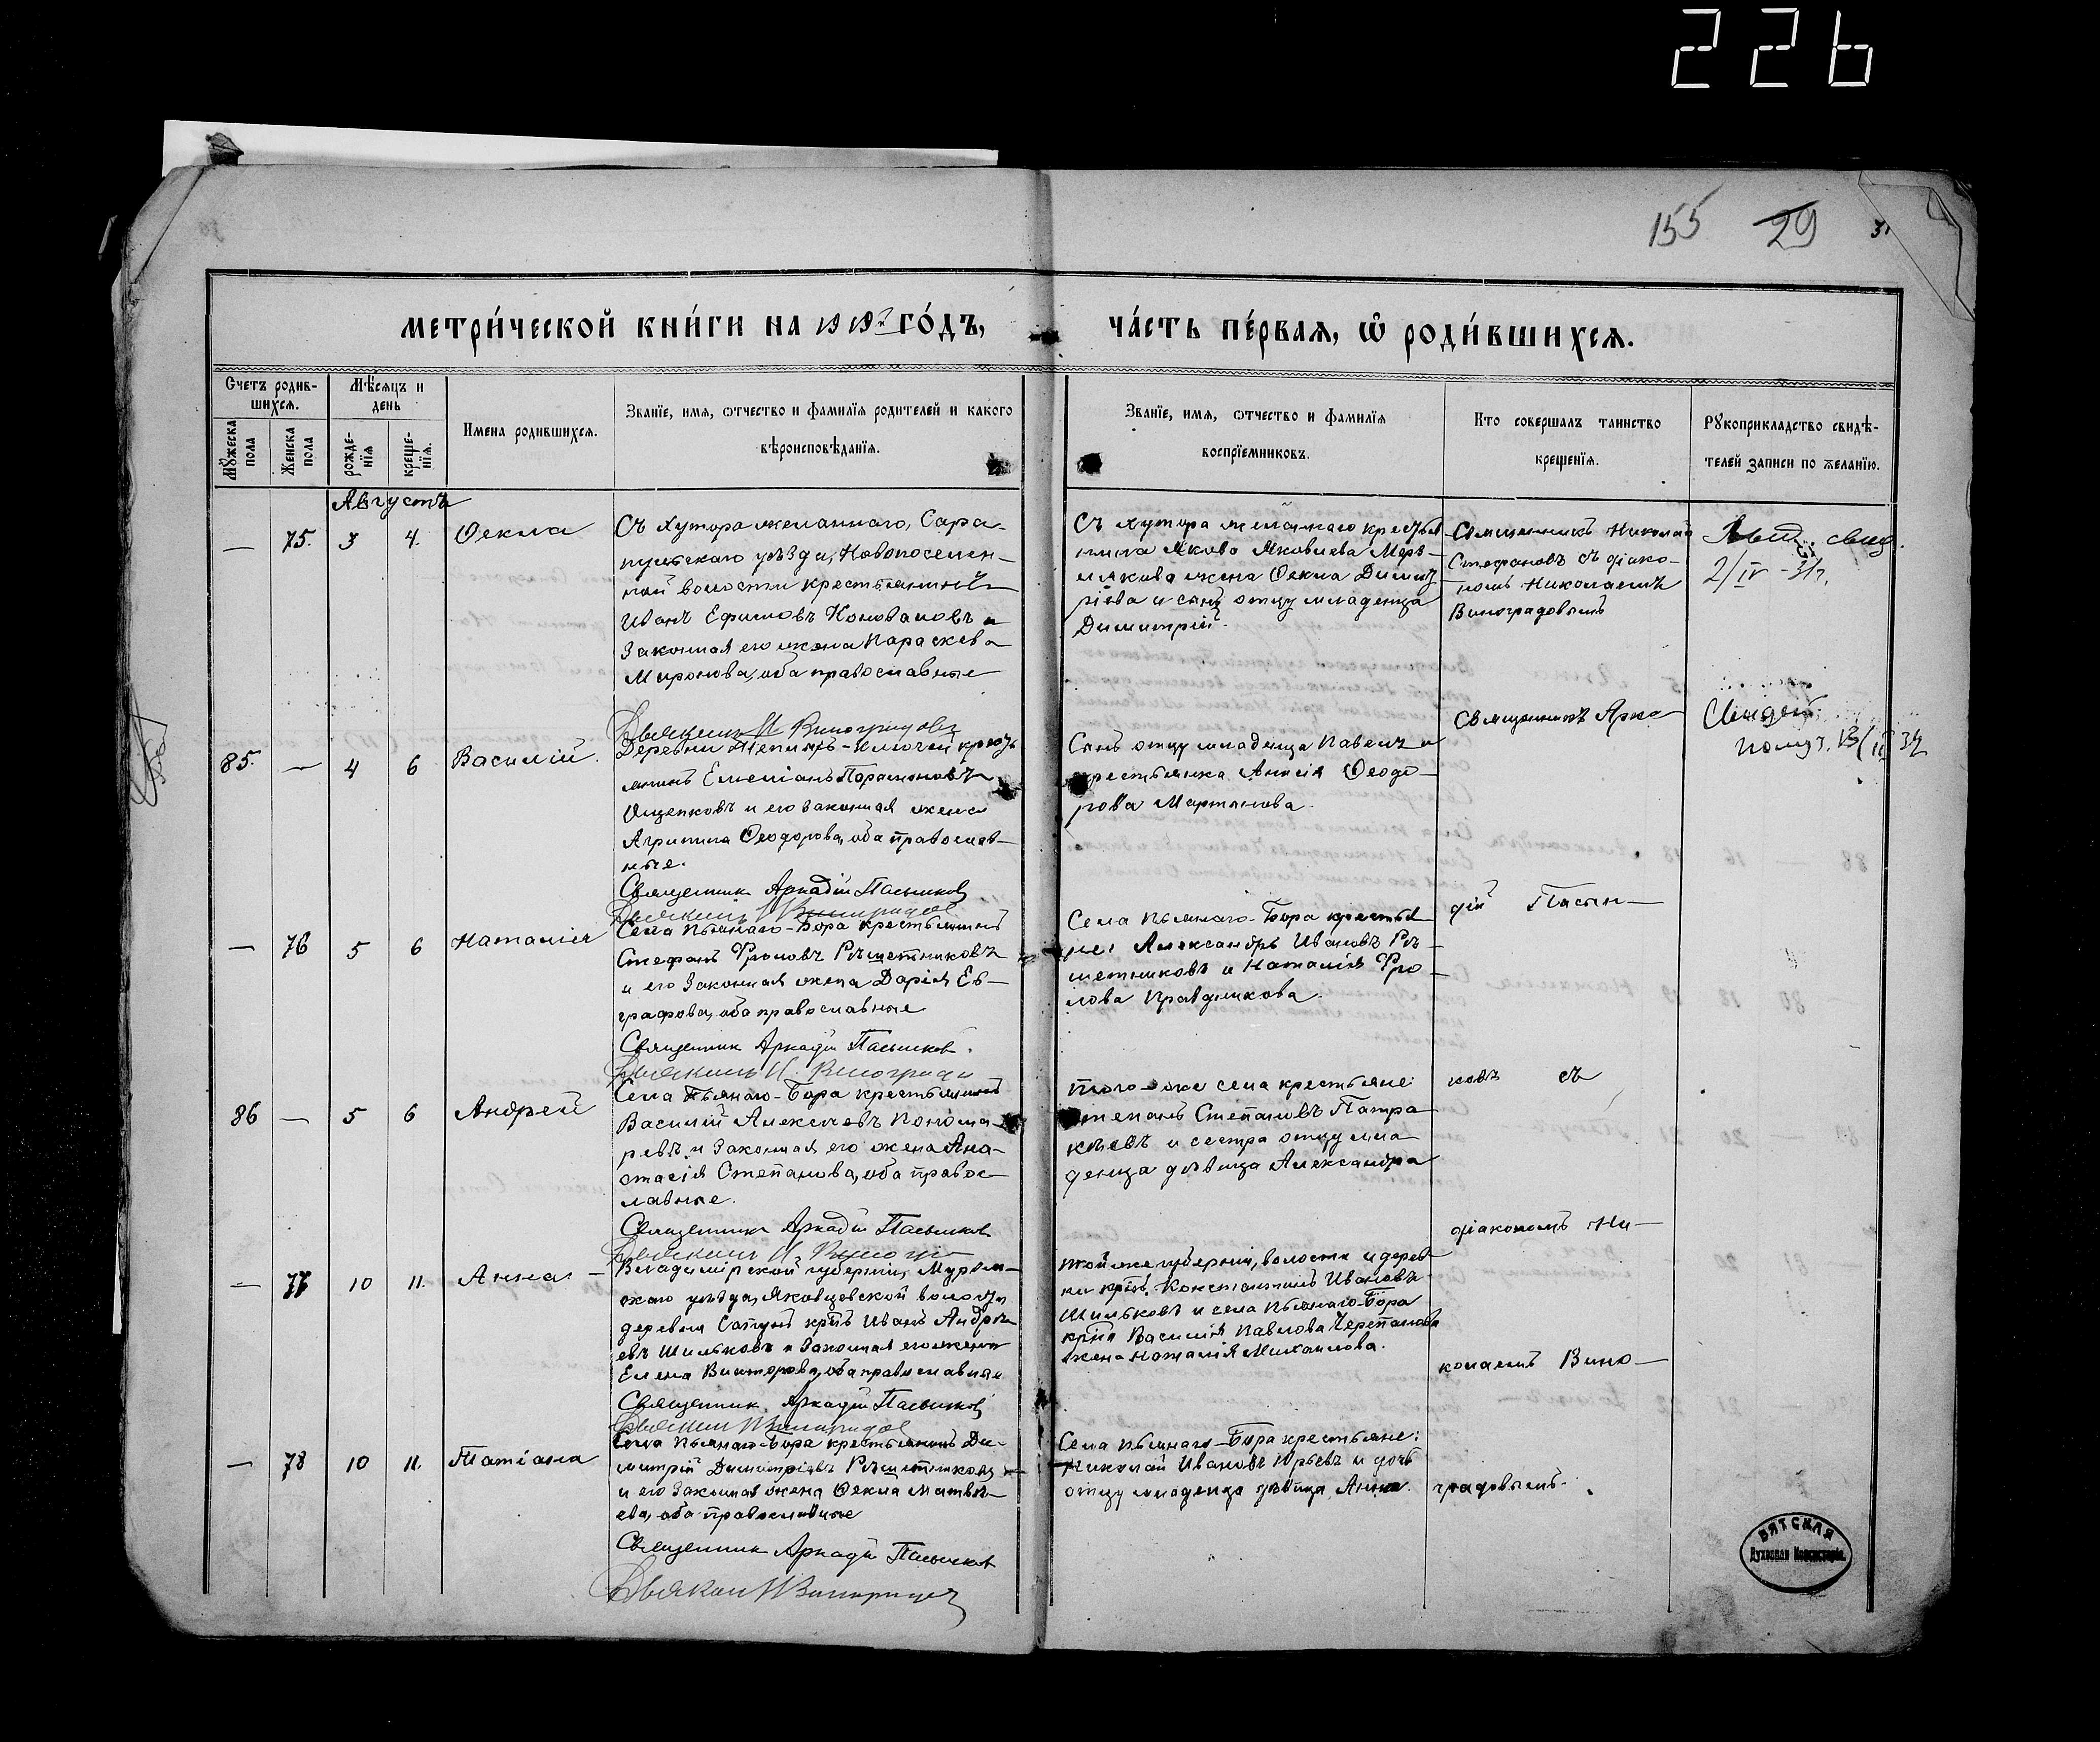 226
155 29 31
Метри́ческой кни́ги на 1919 го́дъ, ча́сть пе́рвая, ѡ҆ роди́вшихся.
Счетъ родив-
шихся.
Мѣсяцъ и
день
Мужеска
пола
Женска
пола
рожде-
нїя
креще-
нїя.
Имена родившихся.
Званїе, имя, ѿчество и фамилїя родителей и какого
вѣроисповѣданїя.
Званїе, имя, ѿчество и фамилїя
воспрїемниковъ.
Кто совершалъ таинство
крещенїя.
Рукоприкладство свидѣ-
телей записи по желанїю.
Августъ
— 75. 3 4. Ѳекла
Съ Хутора желаннаго, Сара-
пульскаго уѣзда, Новопоселен-
ной волости крестьянинъ
Иванъ Ефимовъ Коноваловъ и
законная его жена Параскева
Миронова, оба православные
Дьяконъ Н Виноградовъ
Съ хутора желаннаго крестья
нина Якова Яковлева Мерз-
лякова жена Ѳекла Димит
ріева и сынъ отцу младенца
Димитрій.
Священникъ Николай
Стефановъ съ діако-
номъ Николаемъ
Виноградовымъ
Выд. свид.
2/IV - 31 г.
85. — 4 6 Василій.
Деревни -Ключей крест
янинъ Емеліанъ Парамоновъ
Ощепковъ и его законная жена
Агрипина Ѳеодорова, оба православ-
ные.
Священник Аркадій Пасынков
Дьяконъ Н Виноградов
Сынъ отцу младенца Павелъ и
крестьянка Анисія Ѳеодо-
рова Мартьянова.
Священникъ Арка-
Свидѣт.
получ.
— 76 5 6 Наталія
Села Пьянаго-Бора крестьянинъ
Стефанъ Фроловъ Рѣшетниковъ
и его законная жена Дарія Ев-
графова, оба православные
Священник Аркадій Пасынков.
Дьяконъ Н. Виноградо
Села Пьянаго-Бора крестья
не: Александръ Ивановъ Рѣ-
шетниковъ и Наталія Фро-
лова Правдикова.
дій Пасын-
86 — 5 6 Андрей
Села Пьянаго-Бора крестьянинъ
Василій Алексѣевъ Понома-
ревъ и законная его жена Ана-
стасія Степанова, оба правос-
лавные.
Священник Аркадій Пасынков
Дьяконъ Н. Виногра
Того-же села крестьяне:
Степанъ Степановъ Патра
кѣевъ и сестра отцу мла-
денца дѣвица Александра
ковъ съ
— 77 10 11. Анна
Владимірской губерніи, Муром-
скаго уѣзда, Яковцевской волости
деревни кр̃нъ Иванъ Андрѣ
евъ Шильковъ и законная его жена
Елена Викторова, оба православные
Священник Аркадій Пасынков
Дьякон Н Виноградов
той же губерніи, волости и дерев
ни кр̃нъ Константинъ Ивановъ
Шильковъ и села Пьянаго-Бора
кр̃на Василія Павлова Черепанова
жена Наталія Михаилова.
діакономъ Ни-
— 78 10 11. Татіана
Села Пьянаго-Бора крестьянинъ Ди-
митрій Димитріевъ Рѣшетниковъ
и его законная жена Ѳекла Матвѣ-
ева, оба православные
Священник Аркадій Пасынков
Дьякон Н Виноградов
Села Пьянаго-Бора крестьяне:
Николай Ивановъ Юрьевъ и дочь
отцу младенца дѣвица Анна.
колаемъ Вино-
градовымъ.
ВЯТСКАЯ
Духовная Консисторія.